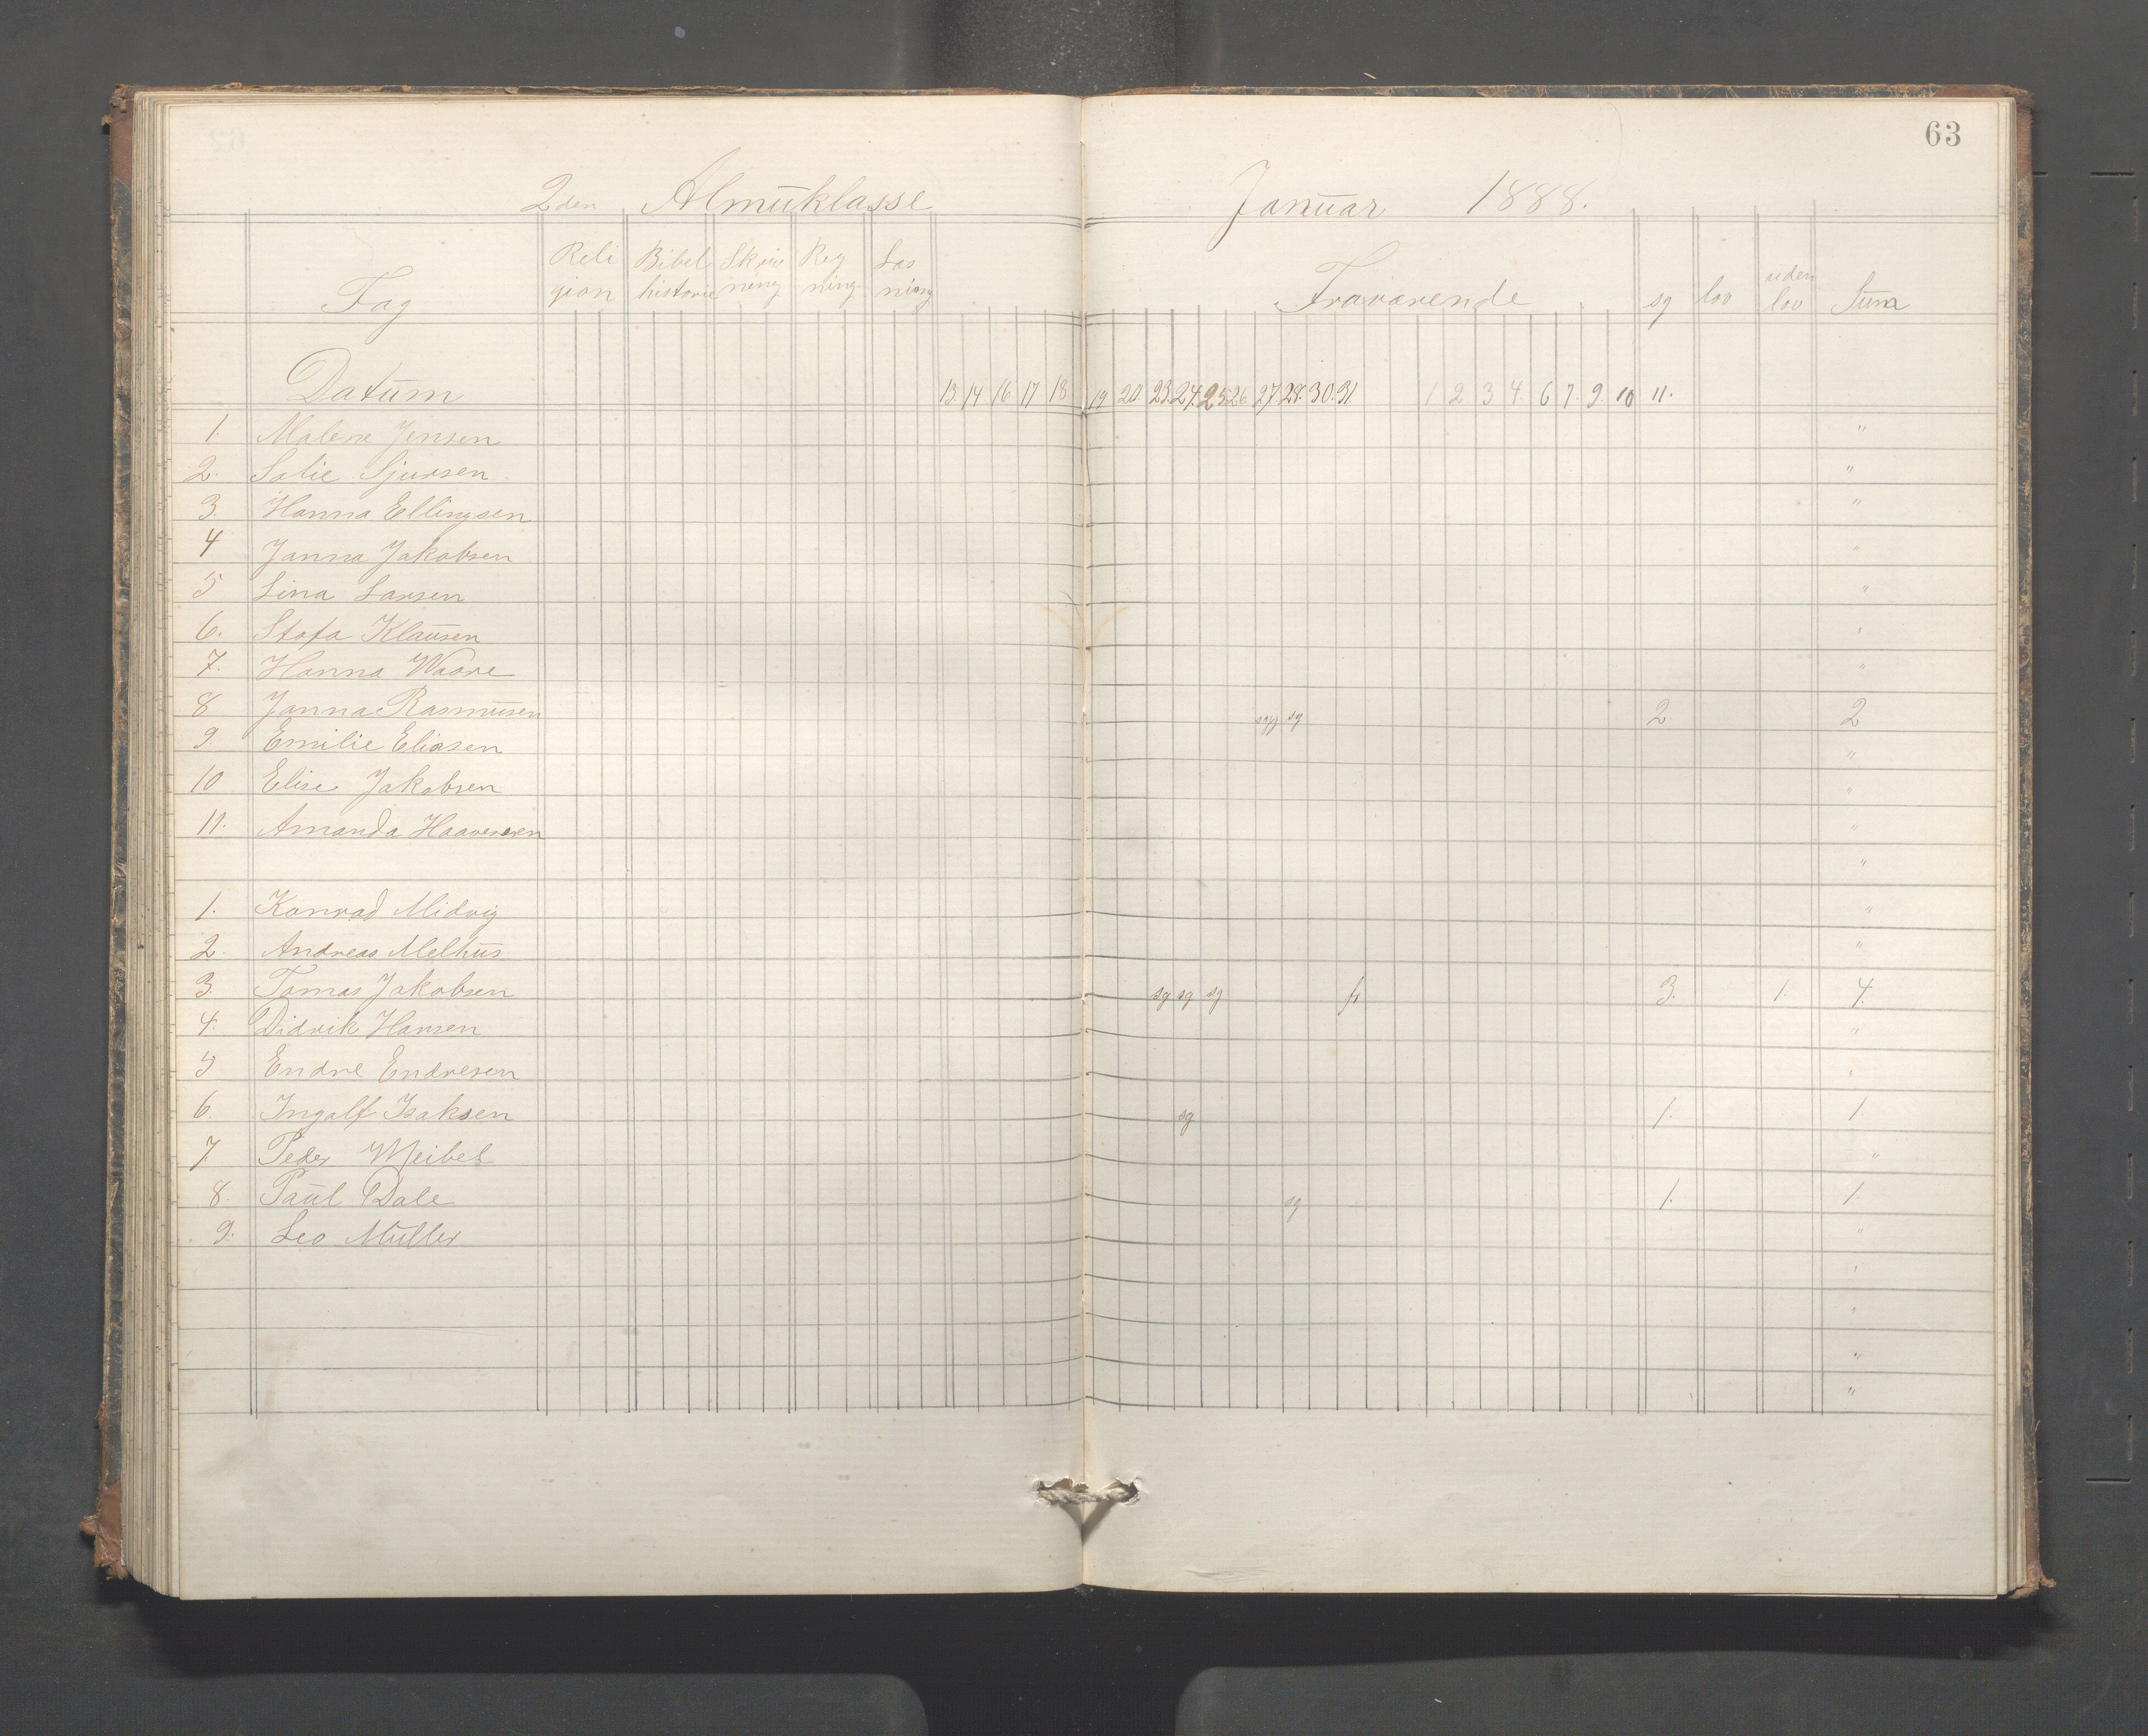 63
2den Almuklasse Januar 1888.
Fag Religion Bibelhistorie Skrivning Regning Læsning Fraværende sg lov uden lov Sum
Datum 13. 14 16 17 18 19 20. 23. 24. 25 26 27. 28. 30. 31. 1 2 3 4. 6 7. 9. 10 11.
1. Malene Jensen "
2. Sofie Sjursen "
3. Hanna Ellingsen "
4 Janna Jakobsen "
5 Lina Larsen "
6. Klausen "
7. Hanna Waare "
8 Janna Rasmusen sg sg 2 2
9. Emilie Eliasen "
10 Elise Jakobsen "
11. Amanda "
"
1. Konrad Midvig "
2. Andreas Melhus "
3. Tomas Jakobsen sg sg sg 3. 1. 4.
4. Didrik Hansen "
5 Endre Endresen "
6. Ingolf Isaksen sg 1. 1.
7 Peder Meibel "
8. Paul Dale sg 1. 1.
9. Leo Müller "
"
"
"
"